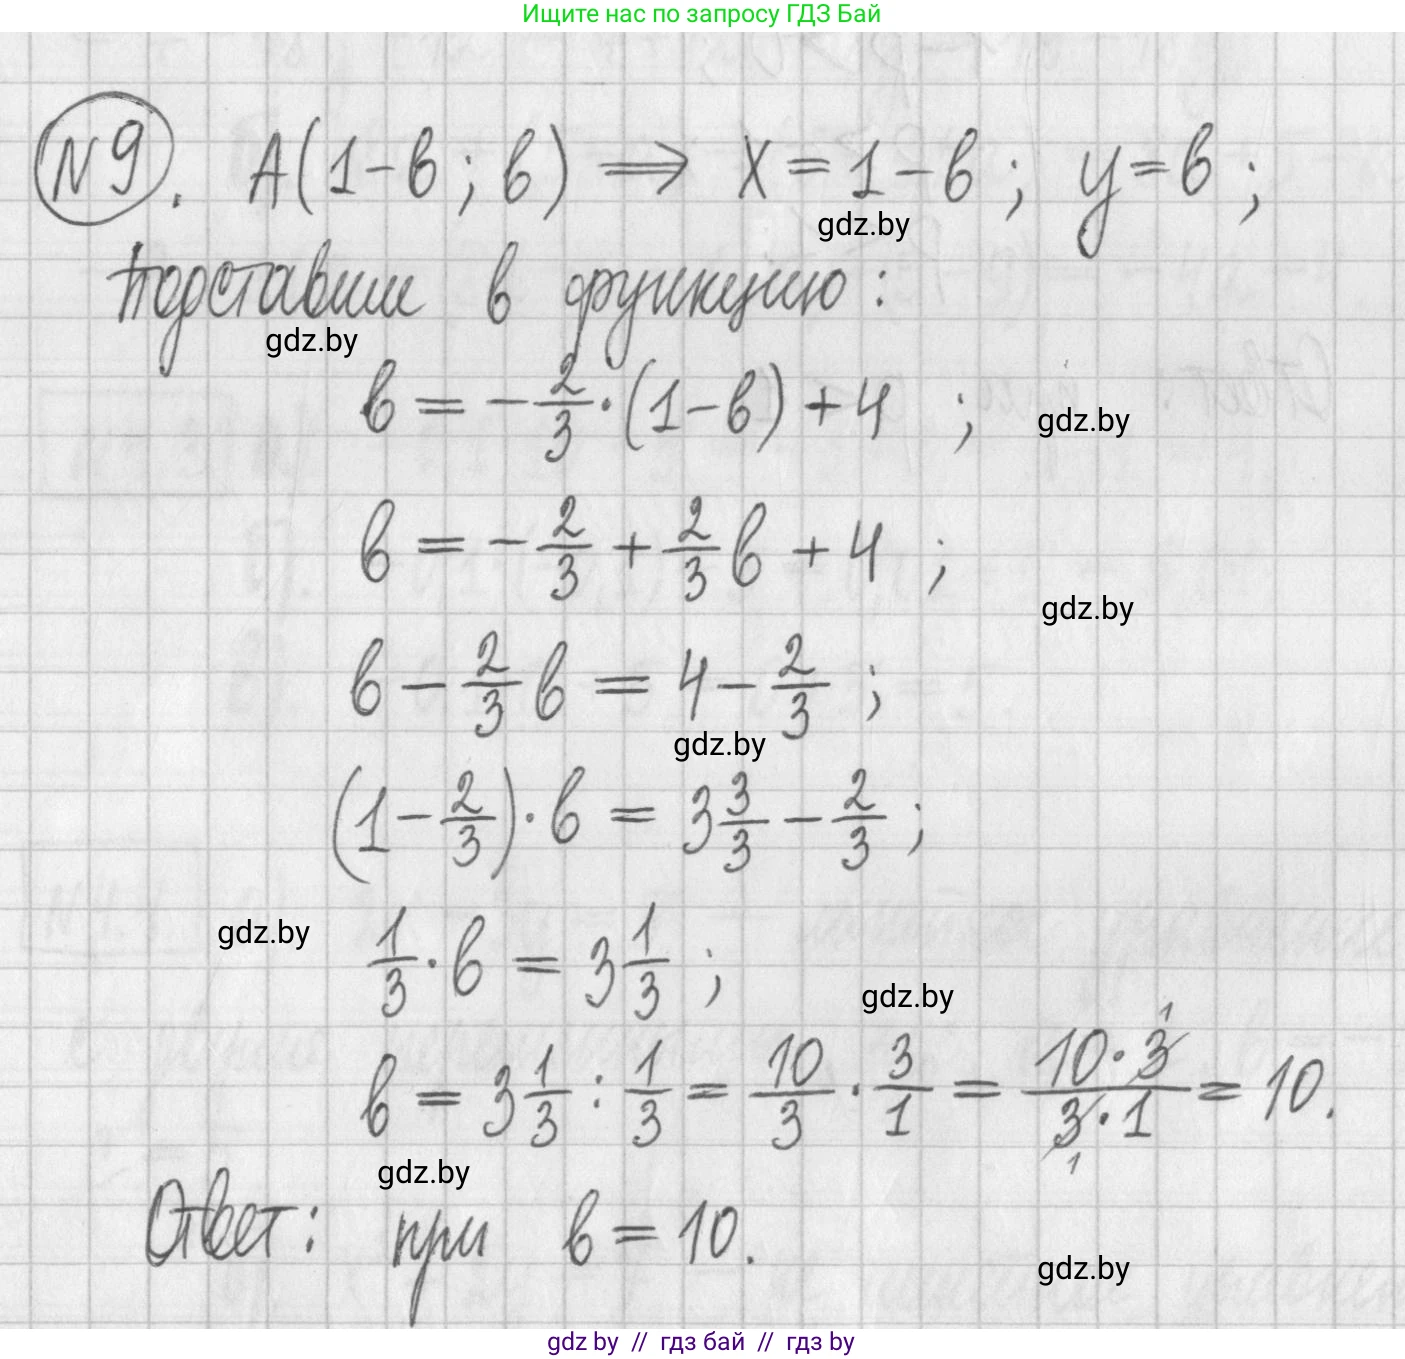 Ищите нас по запросу ГДЗ Бай
№9. A(1-в; в) ⟹ x = 1-в; y = в;
gdz.by
Подставим в функцию:
gdz.by
в = -2/3·(1-в)+4;
gdz.by
в = -2/3 + 2/3в + 4;
gdz.by
в - 2/3в = 4 - 2/3;
gdz.by
(1-2/3)·в = 3 3/3 - 2/3;
gdz.by
1/3·в = 3 1/3;
gdz.by
в = 3 1/3 : 1/3 = 10/3 · 3/1 = 10·3/3·1 = 10.
1
1
gdz.by
Ответ: при в = 10.
gdz.by
gdz by // гдз бай // гдз by